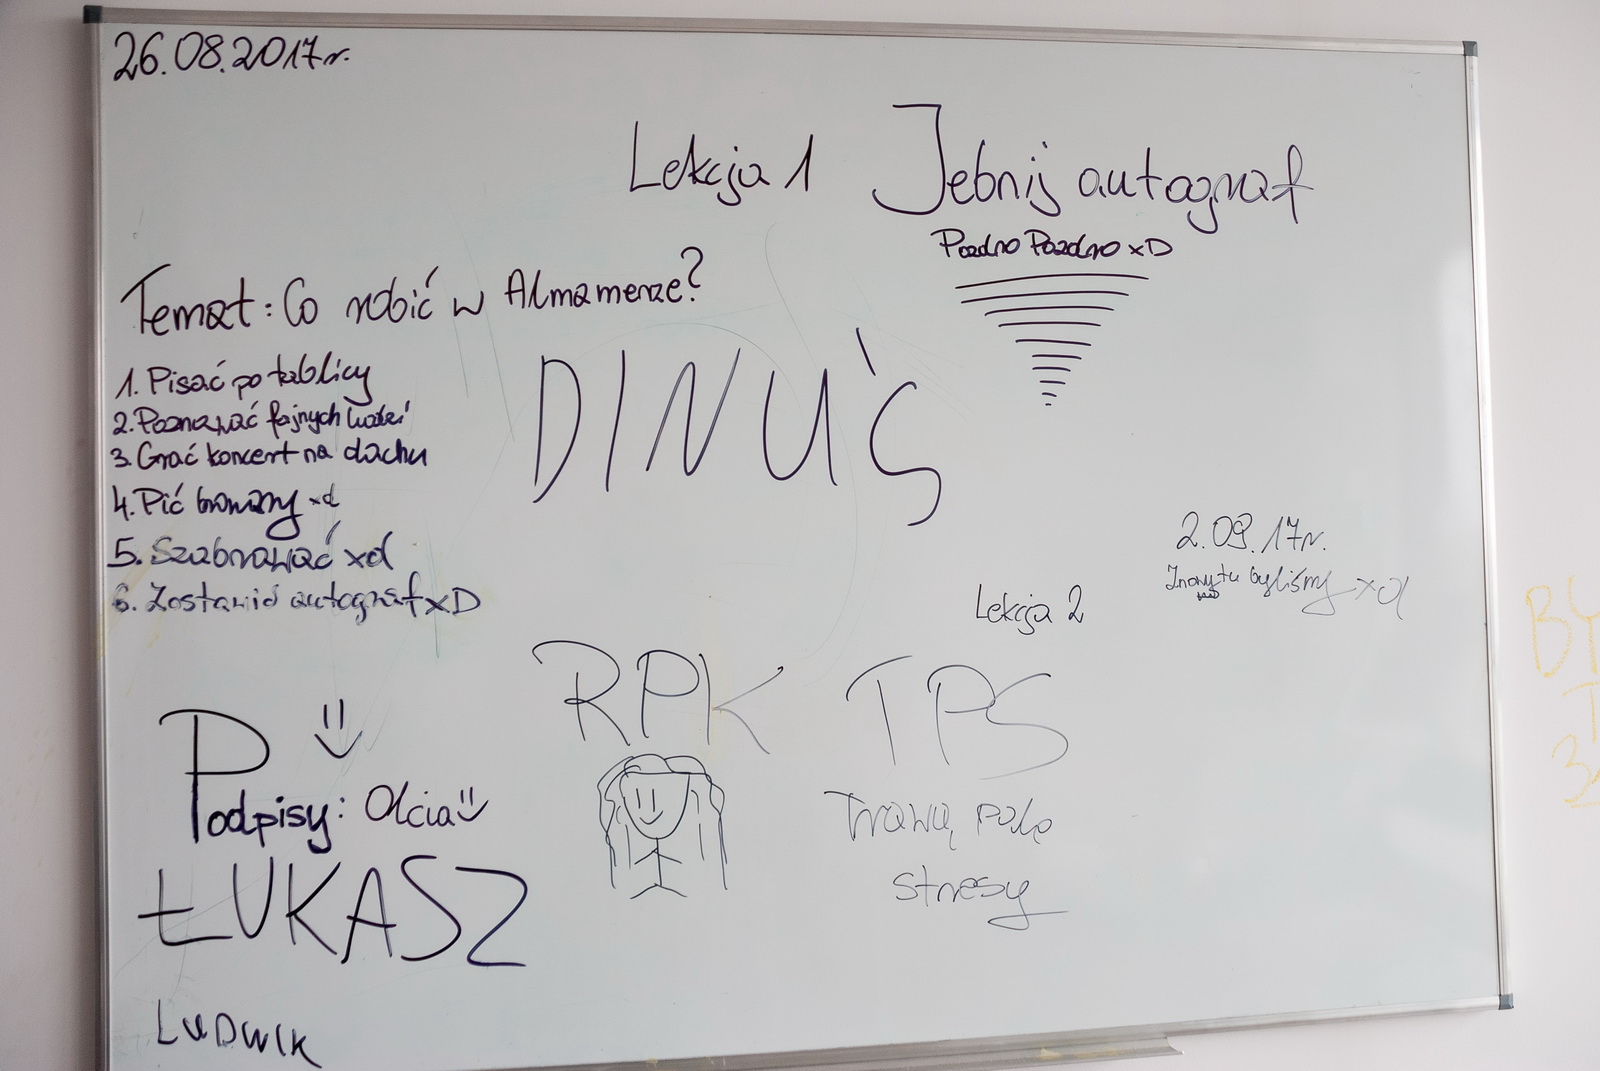 26.08.2017r.
Lekcja 1
Jebnij autograf
Pozdro Pozdro xD
Temat: Co robić w Almamerze?
1. Pisać po tablicy
2. Poznawać fajnych ludzi
3. Grać koncert na dachu
4. Pić browary xd
5. Szabrować xd
6. Zostawić autograf xD
DINUŚ
2.09.17r.
Znowu tu byliśmy xd
Lekcja 2
RPK TPS
Trawą palę
stresy
Podpisy: Olcia
ŁUKASZ
LUDWIK
BY
3